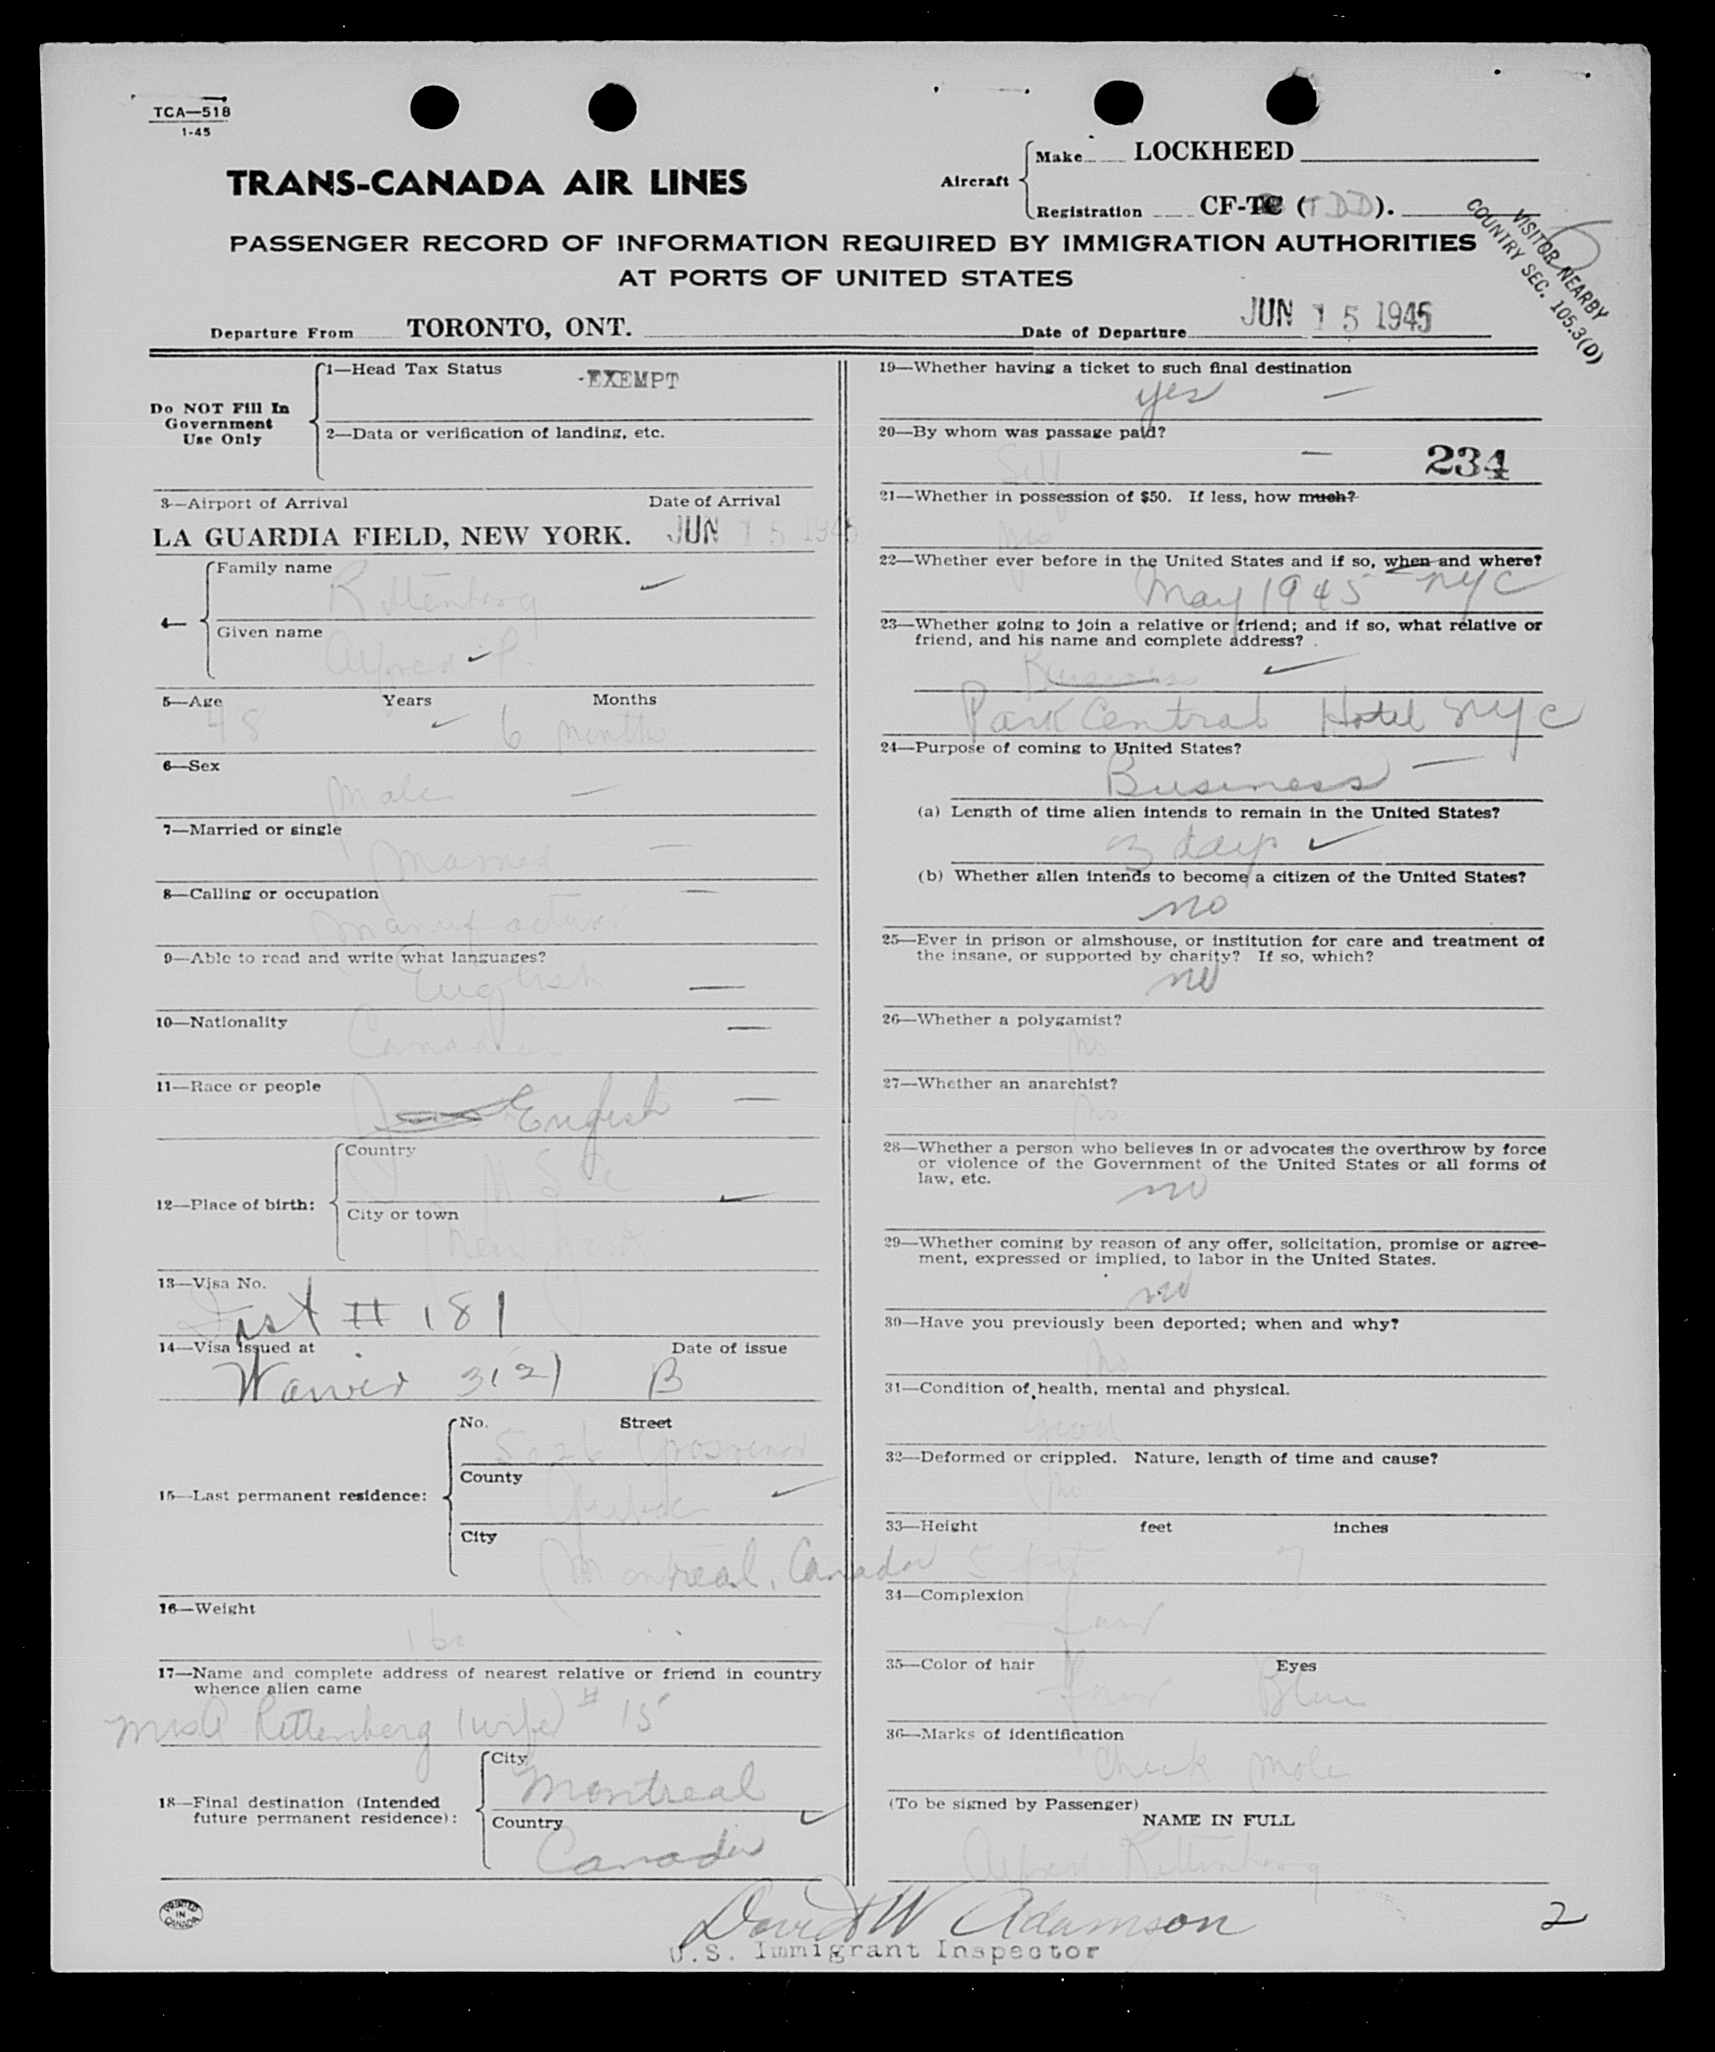 TCA—518
1-45
TRANS-CANADA AIR LINES
Aircraft
Make LOCKHEED
Registration CF-TC (TDD).
PASSENGER RECORD OF INFORMATION REQUIRED BY IMMIGRATION AUTHORITIES
AT PORTS OF UNITED STATES
VISITOR NEARBY
COUNTRY SEC. 105.3(D)
Departure From TORONTO, ONT. Date of Departure JUN 15 1945
Do NOT Fill In
Government
Use Only
1—Head Tax Status EXEMPT
2—Data or verification of landing, etc.
3—Airport of Arrival Date of Arrival
LA GUARDIA FIELD, NEW YORK. JUN 15 1945
4—
Family name
Rittenberg
Given name
Alfred P.
5—Age Years Months
48 6 months
6—Sex
Male
7—Married or single
Married
8—Calling or occupation
Manufacturer
9—Able to read and write what languages?
English
10—Nationality
Canadian
11—Race or people
English
12—Place of birth:
Country
City or town
New York
13—Visa No.
# 181
14—Visa issued at Date of issue
Waiver 3(2) B
15—Last permanent residence:
No. Street
Grosvenor
County
Quebec
City
Montreal, Canada
16—Weight
160
17—Name and complete address of nearest relative or friend in country
whence alien came
Mrs A Rittenberg (wife) # 15
18—Final destination (Intended
future permanent residence):
City
Montreal
Country
Canada
PRINTED
IN
CANADA
19—Whether having a ticket to such final destination
yes
20—By whom was passage paid?
Self
234
21—Whether in possession of $50. If less, how much?
yes
22—Whether ever before in the United States and if so, when and where?
May 1945 NYC
23—Whether going to join a relative or friend; and if so, what relative or
friend, and his name and complete address?
Business
Park Central Hotel NYC
24—Purpose of coming to United States?
Business
(a) Length of time alien intends to remain in the United States?
3 days
(b) Whether alien intends to become a citizen of the United States?
no
25—Ever in prison or almshouse, or institution for care and treatment of
the insane, or supported by charity? If so, which?
no
26—Whether a polygamist?
no
27—Whether an anarchist?
no
28—Whether a person who believes in or advocates the overthrow by force
or violence of the Government of the United States or all forms of
law, etc.
no
29—Whether coming by reason of any offer, solicitation, promise or agree-
ment, expressed or implied, to labor in the United States.
no
30—Have you previously been deported; when and why?
no
31—Condition of health, mental and physical.
Good
32—Deformed or crippled. Nature, length of time and cause?
no
33—Height feet inches
5 feet 7
34—Complexion
fair
35—Color of hair Eyes
fair Blue
36—Marks of identification
Cheek mole
(To be signed by Passenger)
NAME IN FULL
Alfred Rittenberg
David W Adamson
U.S. Immigrant Inspector
2